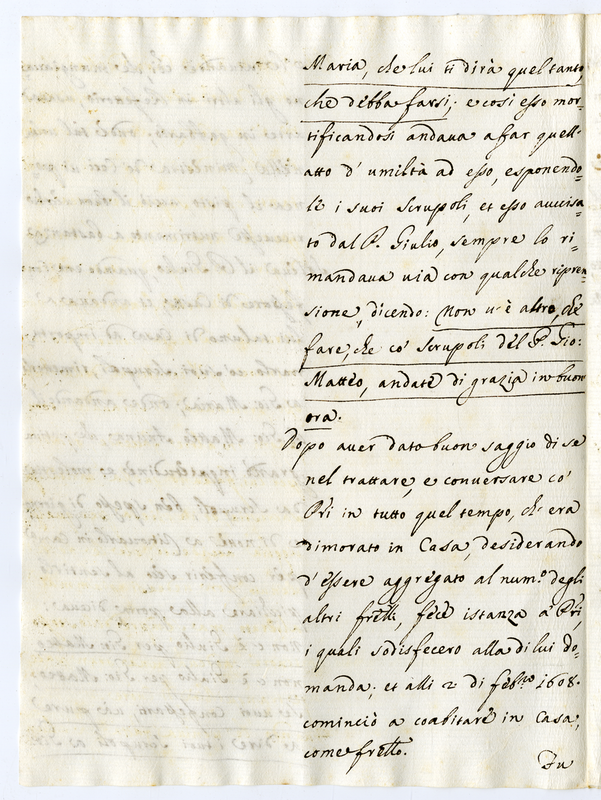 Maria, che lui ti dirà quel tanto,
che debba farsi; e così esso mor=
tificandosi andaua a far quell'
atto d' umiltà ad esso, esponendo=
le i suoi scrupoli, et esso auuisa=
to dal P. Giulio, sempre lo ri=
mandaua uia con qualche ripren=
sione, dicendo: Non u'è altro, che
fare, che co' scrupoli del P. Gio:
Matteo, andate di grazia in buon
ora.
Dopo auer dato buon saggio di se
nel trattare, e conuersare co'
Pri in tutto quel tempo, ch' era
dimorato in Casa, desiderando
d' essere aggregato al num.o degli
altri frelli, fece istanza a' Pri,
i quali sodisfecero alla di lui do=
manda; et alli 2 di feb.ro 1608.
cominciò a coabitare in Casa,
come frello.
Fu